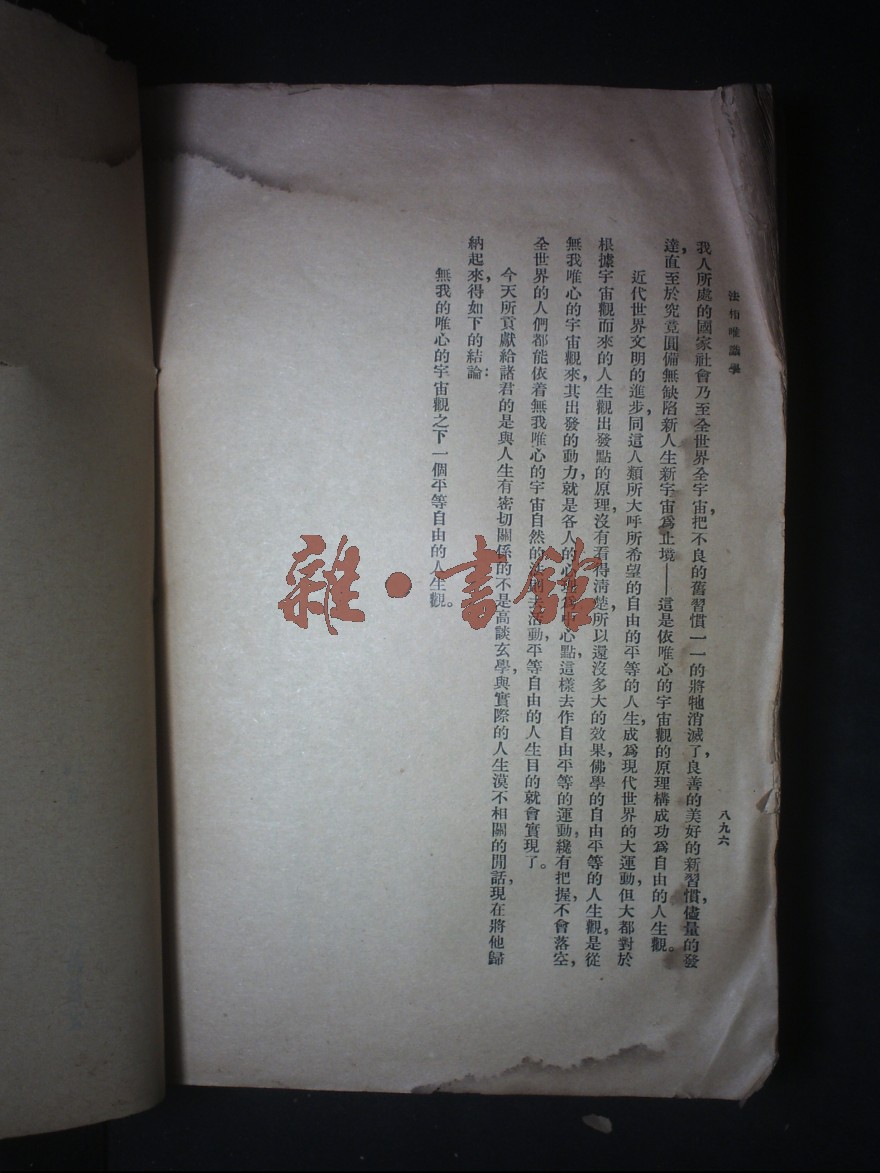 法相唯識學
八九六
我人所處的國家社會乃至全世界全宇宙，把不良的舊習慣一一的將牠消滅了，良善的美好的新習慣，儘量的發
達，直至於究竟圓備無缺陷新人生新宇宙爲止境——這是依唯心的宇宙觀的原理構成功爲自由的人生觀。
近代世界文明的進步，同這人類所大呼所希望的自由的平等的人生，成爲現代世界的大運動，但大都對於
根據宇宙觀而來的人生觀出發點的原理，沒有看得清楚，所以還沒多大的效果，佛學的自由平等的人生觀，是從
無我唯心的宇宙觀來，其出發的動力，就是各人的心理爲中心點，這樣去作自由平等的運動，纔有把握，不會落空，
全世界的人們都能依着無我唯心的宇宙自然的法則去活動，平等自由的人生目的就會實現了。
今天所貢獻給諸君的是與人生有密切關係的，不是高談玄學，與實際的人生漠不相關的閒話，現在將他歸
納起來，得如下的結論：
無我的唯心的宇宙觀之下一個平等自由的人生觀。
雜·書館